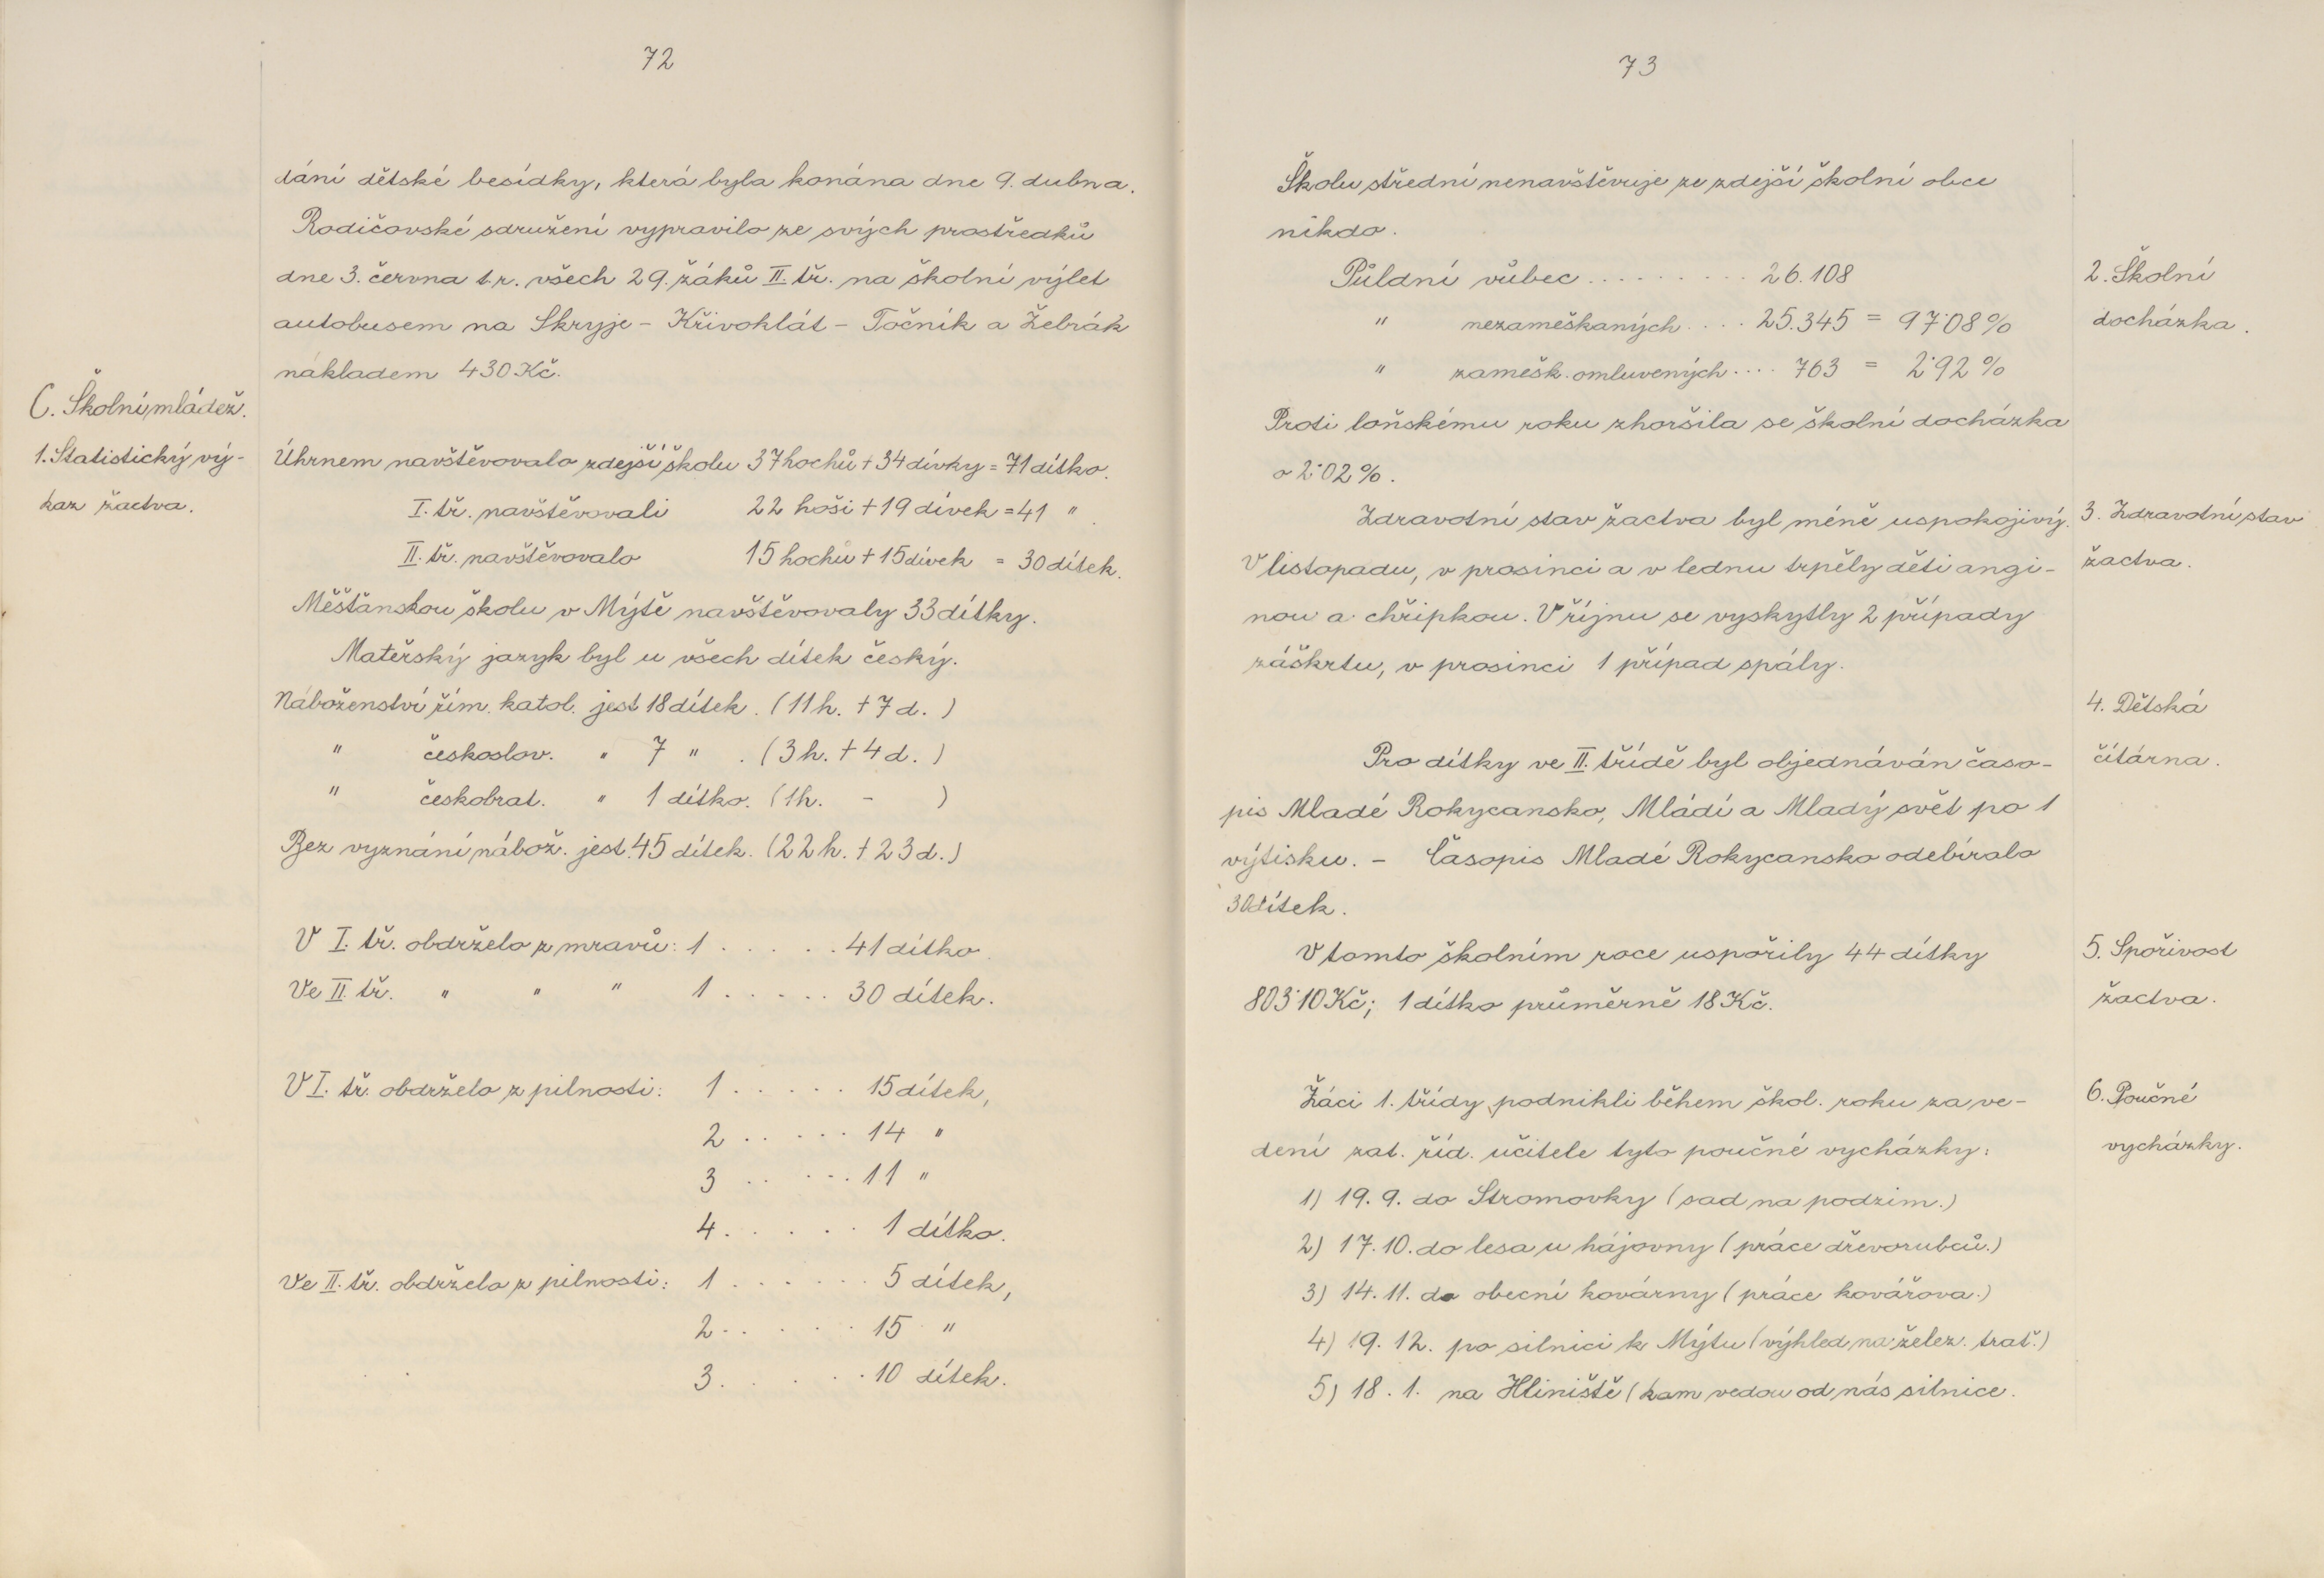 72
dání dětské besídky, která byla konána dne 9. dubna.
Rodičovské sdružení vypravilo ze svých prostředků
dne 3. června t.r. všech 29. žáků II. tř. na školní výlet
autobusem na Skryje - Křivoklát - Točník a Žebrák
nákladem 430 Kč.
C. Školní mládež.
1. Statistický vý-
kaz žactva.
Úhrnem navštěvovalo zdejší školu 37 hochů + 34 dívky = 71 dítko.
I. tř. navštěvovali 22 hoši + 19 dívek = 41 "
II. tř. navštěvovalo 15 hochů + 15 dívek = 30 dítek.
Měšťanskou školu v Mýtě navštěvovaly 33 dítky.
Mateřský jazyk byl u všech dítek český.
Náboženství řím. katol. jest 18 dítek. (11 h. + 7 d.)
" českoslov. " 7 " . (3 h. + 4 d.)
" českobrat. " 1 dítko. (1h. - )
Bez vyznání nábož. jest. 45 dítek. (22 h. + 23 d.)
V I. tř. obdrželo z mravů: 1 . . . . . 41 dítko.
Ve II. tř. " " " 1 . . . . . 30 dítek.
V I. tř. obdrželo z pilnosti: 1 . . . . . 15 dítek,
2 . . . . . 14 "
3 . . . . . 11 "
4 . . . . . 1 dítko.
Ve II. tř. obdrželo z pilnosti: 1 . . . . . . 5 dítek,
2 . . . . . 15 "
3 . . . . . 10 dítek.
73
Školu střední nenavštěvuje ze zdejší školní obce
nikdo.
2. Školní
docházka.
Půldní vůbec . . . . . . . . . 26.108
" nezameškaných . . . . 25.345 = 97˙08 %
" zamešk. omluvených . . . . 763 = 2˙92 %
Proti loňskému roku zhoršila se školní docházka
o 2˙02 %.
3. Zdravotní stav
žactva.
Zdravotní stav žactva byl méně uspokojivý.
V listopadu, v prosinci a v lednu trpěly děti angi-
nou a chřipkou. V říjnu se vyskytly 2 případy
záškrtu, v prosinci 1 případ spály.
4. Dětská
čítárna.
Pro dítky ve II. třídě byl objednáván časo-
pis Mladé Rokycansko, Mládí a Mladý svět po 1
výtisku. - Časopis Mladé Rokycansko odebíralo
30 dítek.
5. Spořivost
žactva.
V tomto školním roce uspořily 44 dítky
803˙10 Kč; 1 dítko průměrně 18 Kč.
6. Poučné
vycházky.
Žáci 1. třídy podnikli během škol. roku za ve-
dení zat. říd. učitele tyto poučné vycházky:
1) 19. 9. do Stromovky (sad na podzim.)
2) 17. 10. do lesa u hájovny (práce dřevorubců.)
3) 14. 11. do obecní kovárny (práce kovářova.)
4) 19. 12. po silnici k Mýtu (výhled na želez. trať.)
5) 18. 1. na Hliniště (kam vedou od nás silnice.